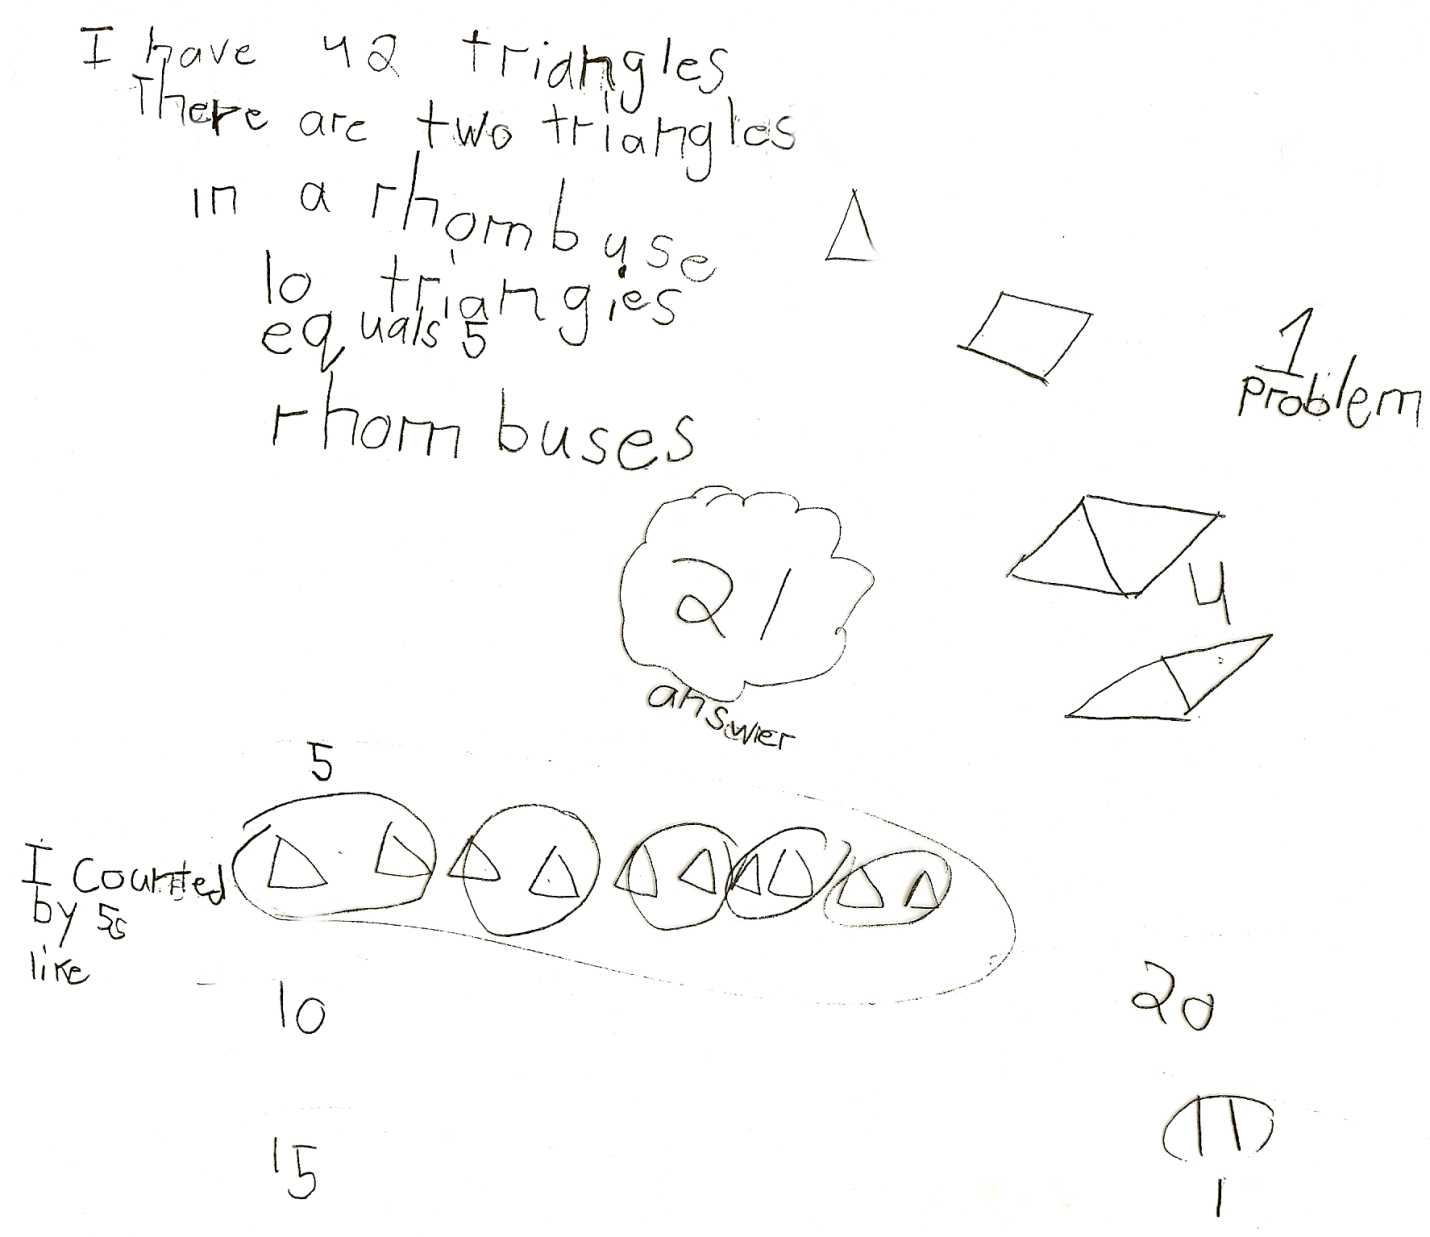 I have 42 triangles
There are two triangles
in a rhombuse
10 triangies
equals 5
rhombuses
1
problem
21
answer
4
5
I counted
by 5s
like
10
20
15
1